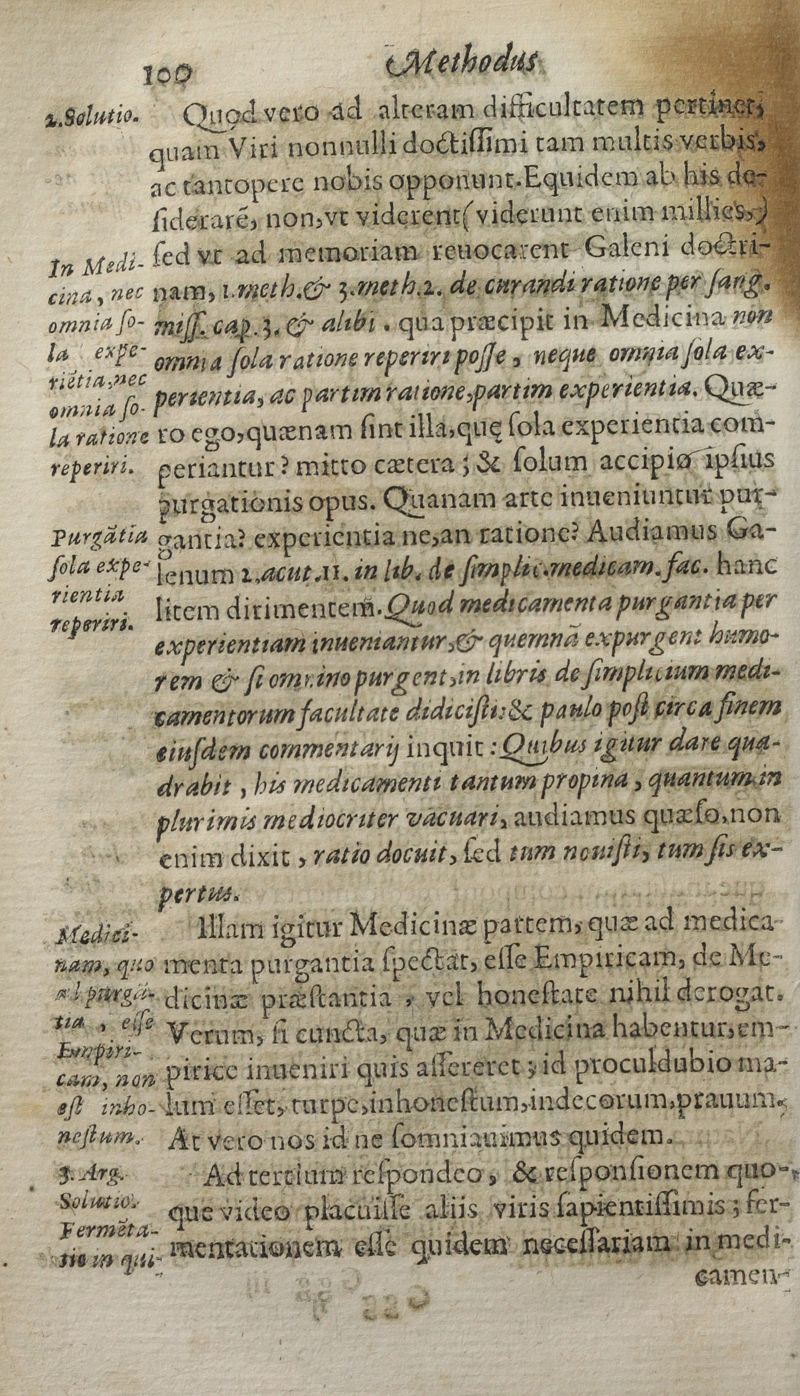 100
Methodus
2.Solutio.
Quod vero ad alteram difficultatem pertinet;
quam Viri nonnulli doctiſſimi tam multis verbis,
ac tantopere nobis opponunt. Equidem ab his de-
ſiderarē, non, vt viderent (viderunt enim millies,)
ſed vt ad memoriam reuocarent Galeni doctri-
nam, 1.meth.& 3.meth.2. de curandi ratione per ſang.
miſſ. cap.3. & alibi. qua præcipit in Medicina non
omnia ſola ratione reperiri poſſe, neque omnia ſola ex-
perientia, ac partim ratione, partim experientia. Quæ-
ro ego, quænam ſint illa, quę ſola experientia com-
periantur? mitto cætera; & ſolum accipio ipſius
purgationis opus. Quanam arte inueniuntur pur-
gantia? experientia ne, an ratione? Audiamus Ga-
lenum 2.acut.11. in lib. de ſimplic.medicam.fac. hanc
litem dirimentem. Quod medicamenta purgantia per
experientiam inueniantur, & quemnā expurgent humo-
rem & ſi omnino purgent, in libris de ſimplicium medi-
camentorum facultate didiciſti: & paulo poſt circa finem
eiuſdem commentarij inquit: Quibus igitur dare qua-
drabit, his medicamenti tantum propina, quantum in
plurimis mediocriter vacuari, audiamus quæſo, non
enim dixit, ratio docuit, ſed tum nouiſti, tum ſis ex-
pertus.
In Medi-
cina, nec
omnia ſo-
la expe-
riētia, nec
omnia ſo-
la ratione
reperiri.
Purgātia
ſola expe-
rientia
reperiri.
Illam igitur Medicinæ partem, quæ ad medica-
menta purgantia ſpectat, eſſe Empiricam, de Me-
dicinæ præſtantia, vel honeſtate nihil derogat.
Verum, ſi cuncta, quæ in Medicina habentur, em-
pirice inueniri quis aſſereret; id proculdubio ma-
lum eſſet, turpe, inhoneſtum, indecorum, prauum.
At vero nos id ne ſomniauimus quidem.
Medici-
nam, quo
purgā-
tia, eſſe
Empiri-
cam, non
eſt inho-
neſtum.
3. Arg.
Solutio.
Fermēta-
tio in qui-
Ad tertium reſpondeo, & reſponſionem quo-
que video placuiſſe aliis viris ſapientiſſimis; fer-
mentationem eſſe quidem neceſſariam in medi-
camen-